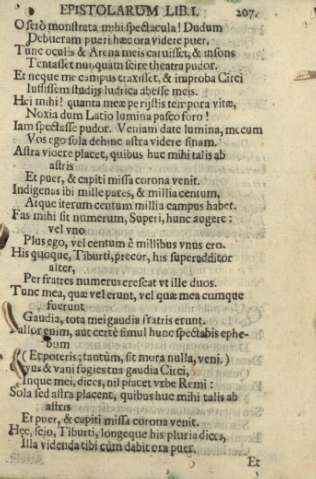 EPISTOLARUM LIB. I. 207.
O serò monstrata mihi spectacula! Dudum
Debueram pueri hæc ora videre puer.
Tunc oculis & Arena meis caruisset, & insons
Tentasset nunquam scire theatra pudor.
Et neque me campus traxisset, & improba Circi
Iussissem studijs ludrica abesse meis.
Hei mihi! quanta meæ perijstis tempora vitæ,
Noxia dum Latio lumina pasco foro!
Iam spectasse pudor. Veniam date lumina, mecum
Vos ego sola dehinc astra videre sinam.
Astra videre placet, quibus huc mihi talis ab
astris
Et puer, & capiti missa corona venit.
Indigenas ibi mille pares, & millia centum,
Atque iterum centum millia campus habet.
Fas mihi sit numerum, Superi, hunc augere:
vel vno
Plus ego, vel centum è millibus vnus ero.
His quoque, Tiburti, precor, his superadditor
alter,
Per fratres numerus crescat vt ille duos.
Tunc mea, quæ vel erunt, vel quæ mea cumque
fuerunt
Gaudia, tota mei gaudia fratris erunt.
enim, aut certè simul hunc spectabis ephe-
bum
(Et poteris; tantùm, sit mora nulla, veni.)
& vani fugies tua gaudia Circi,
Inque mei, dices, nil placet vrbe Remi:
Sola sed astra placent, quibus huc mihi talis ab
astris
Et puer, & capiti missa corona venit.
Hęc, scio, Tiburti, longeque his pluria dices,
Illa videnda tibi cùm dabit ora puer.
Et